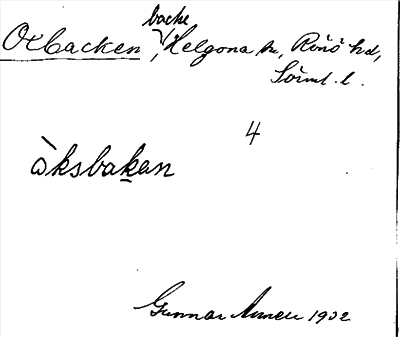 backe
Oxbacken, Helgona sn, Rönö hd,
Sörml. l.
4
òksbakan
Gunnar 1932